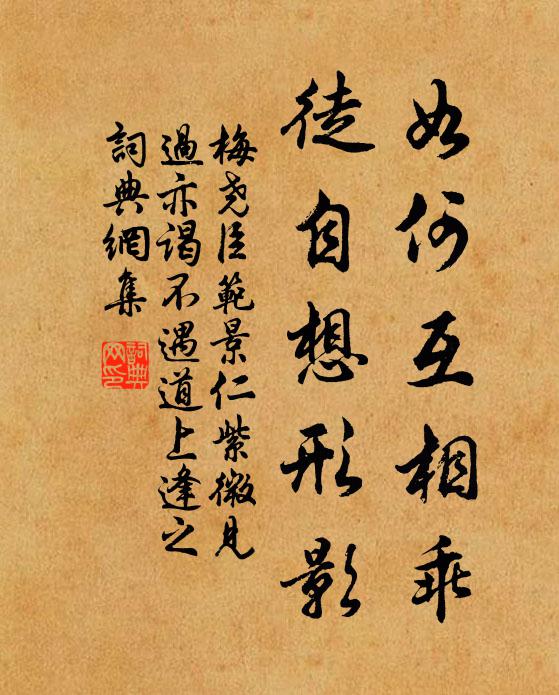 如何互相乖
徒自想形影
梅尧臣範景仁紫微見
過亦谒不遇道上逢之
詞典網集
詞典網印